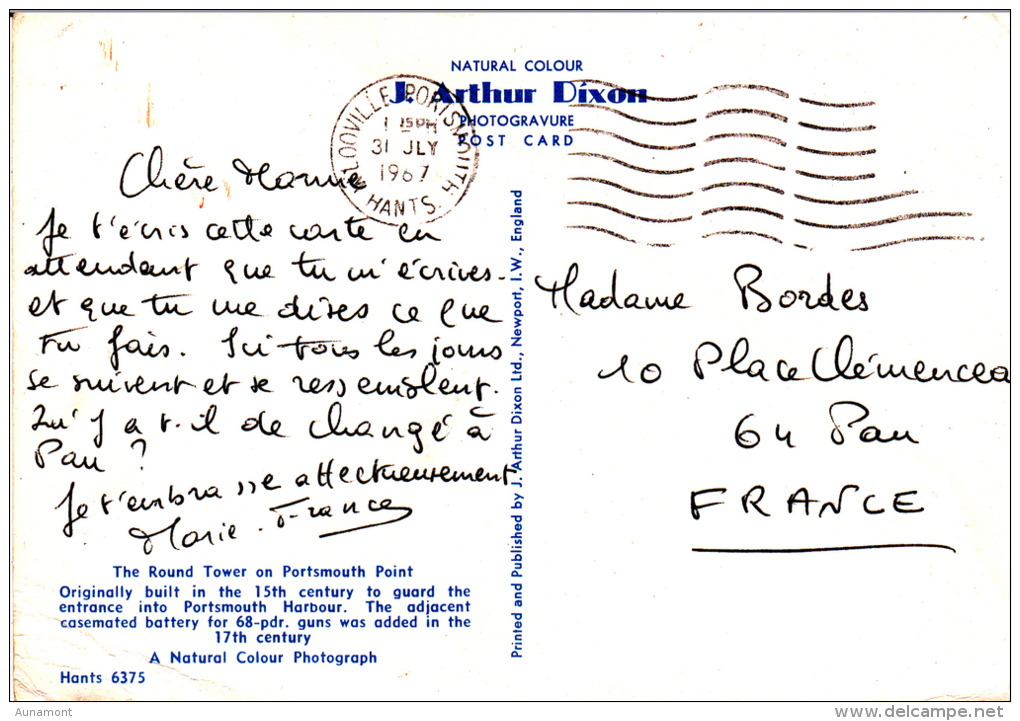 NATURAL COLOUR
J. Arthur Dixon
PHOTOGRAVURE
POST CARD
WATERLOOVILLE PORTSMOUTH
1 15 PM
31 JLY
1967
HANTS.
Chère Mamie
Je t'écris cette carte en
attendant que tu m'écrives.
et que tu me dises ce que
tu fais. Ici tous les jours
se suivent et se ressemblent.
Qu'y a t-il de changé à
Pau ?
Je t'embrasse affectueusement
Marie-France
Madame Bordes
10 Place Clémencea
64 Pau
FRANCE
Printed and Published by J. Arthur Dixon Ltd., Newport, I.W., England
The Round Tower on Portsmouth Point
Originally built in the 15th century to guard the
entrance into Portsmouth Harbour. The adjacent
casemated battery for 68-pdr. guns was added in the
17th century
A Natural Colour Photograph
Hants 6375
Aunamont
delcampe.net